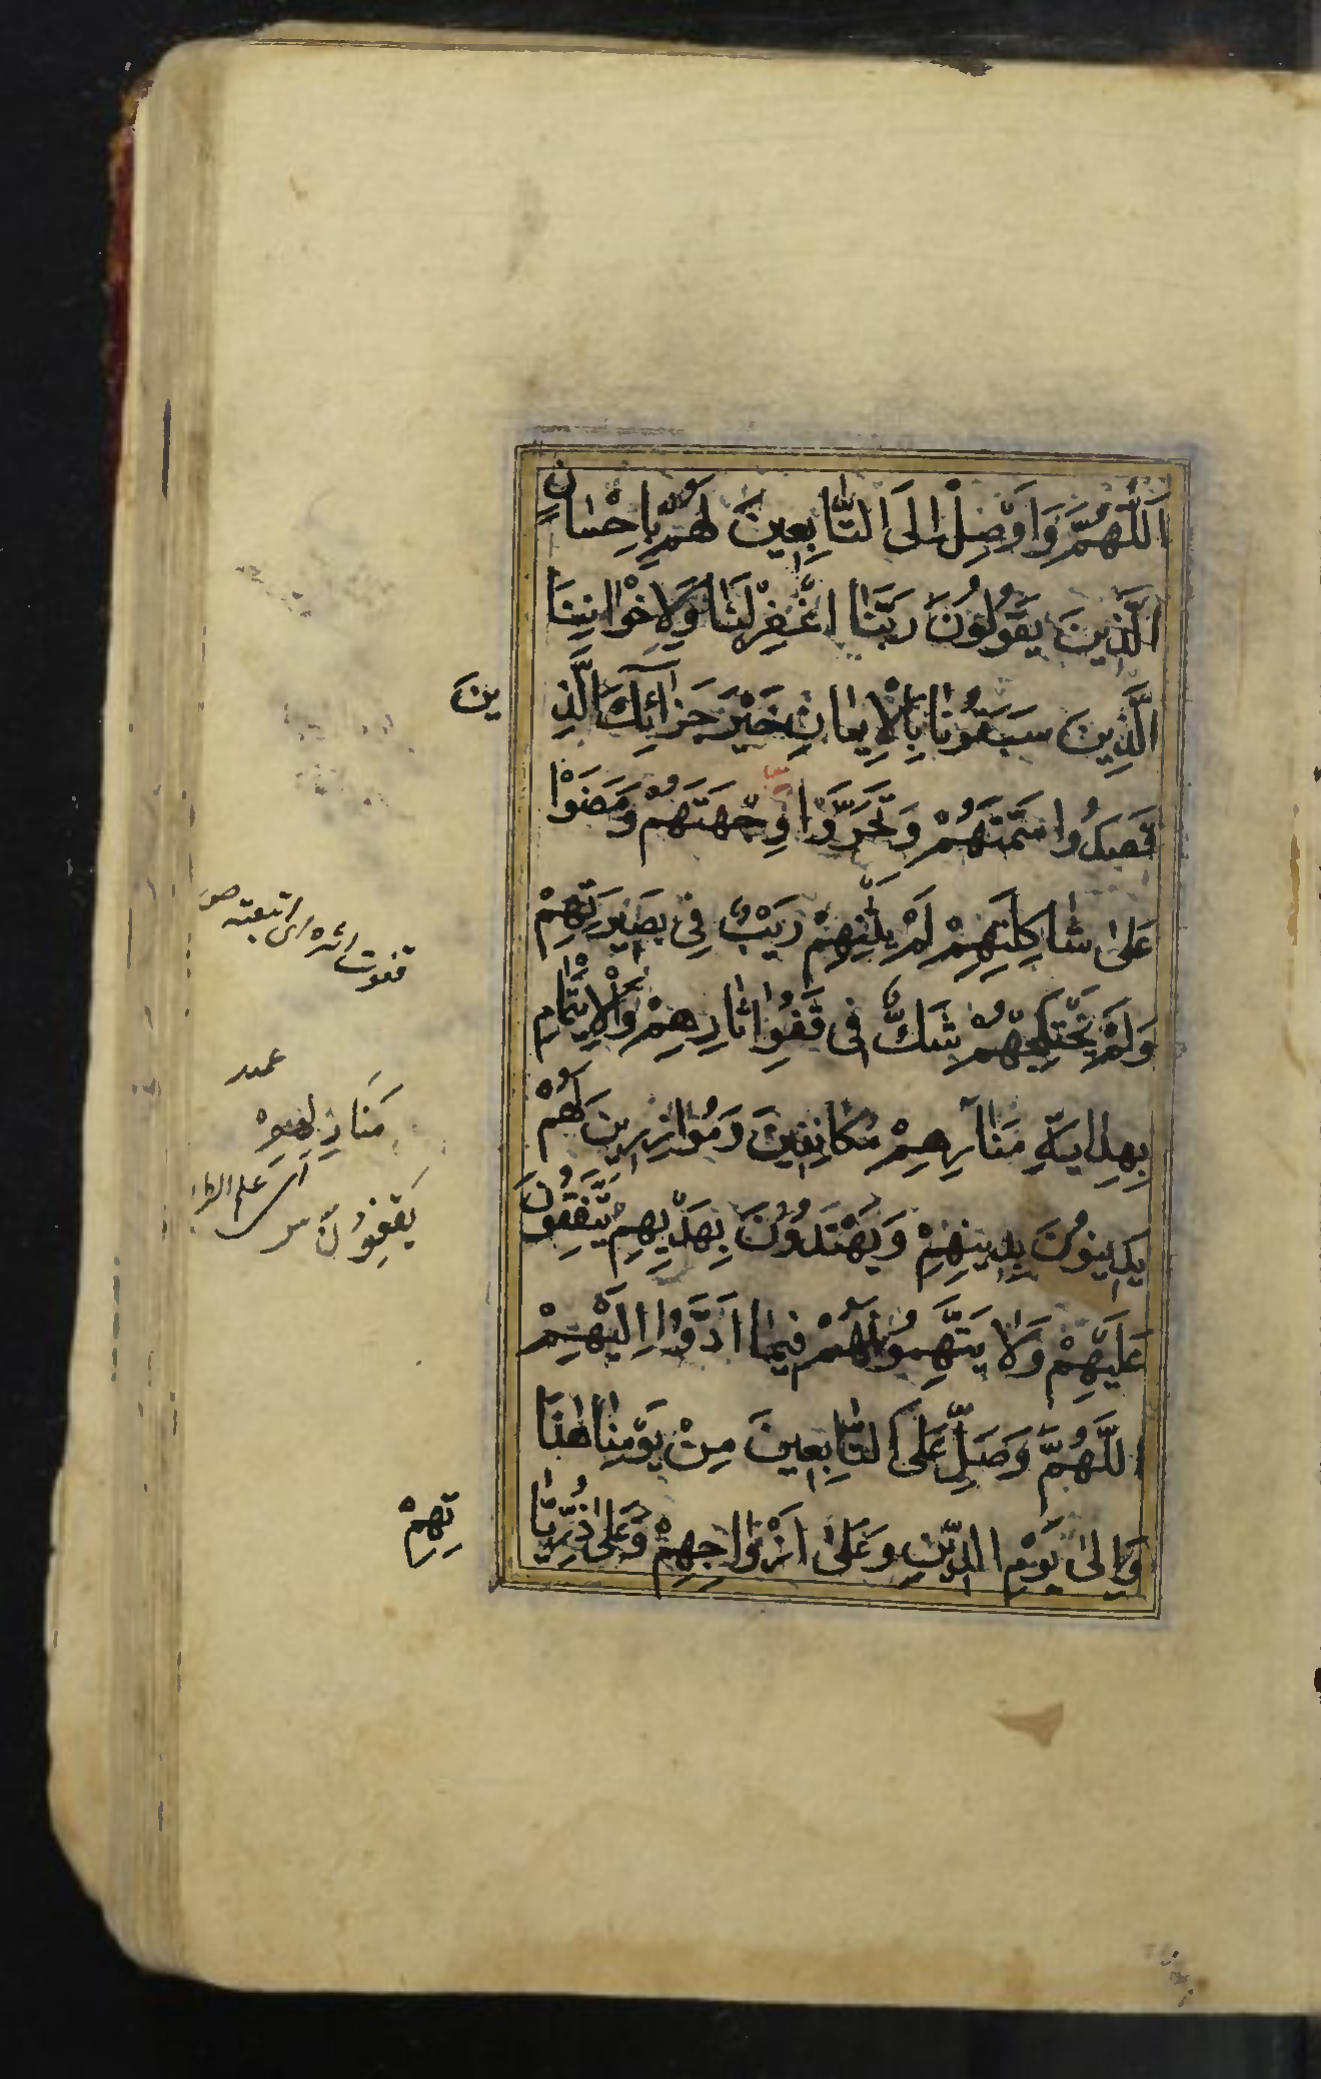 اَللّٰهُمَّ وَاَوْصِلْ اِلَى التّٰابِعِينَ لَهُمْ بِاِحْسٰانٍ
الَّذِينَ يَقُولُونَ رَبَّنَا اغْفِرْ لَنٰا وَلِاِخْوٰانِنَا
الَّذِينَ سَبَقُونٰا بِالْاِيمٰانِ خَيْرَ جَزٰائِكَ الَّذِ
ينَ
قَصَدُوا سَمْتَهُمْ وَتَحَرَّوْا وِجْهَتَهُمْ وَمَضَوْا
عَلىٰ شٰاكِلَتِهِمْ لَمْ يَثْنِهِمْ رَيْبٌ فِى بَصِيرَتِهِمْ
وَلَمْ يَخْتَلِجْهُمْ شَكٌّ فى قَفْوِ اٰثٰارِهِمْ وَالْاِيتِمٰامِ
بِهِدٰايَةِ مَنٰارِهِمْ مُكٰانِفِينَ وَمُوٰازِرِينَ لَهُمْ
يَدِينُونَ بِدِينِهِمْ وَيَهْتَدُونَ بِهَدْيِهِمْ يَتَّفِقُونَ
عَلَيْهِمْ وَلٰا يَتَّهِمُونَهُمْ فِيمٰا اَدَّوْا اِلَيْهِمْ
اللّٰهُمَّ وَصَلِّ عَلَى التّٰابِعِينَ مِنْ يَوْمِنٰا هٰذَا
وَاِلىٰ يَوْمِ الدِّينِ وَعَلىٰ اَزْوٰاجِهِمْ وَعَلىٰ ذُرِّيّٰا
تِهِمْ
قفوت اثره اى اتبعته